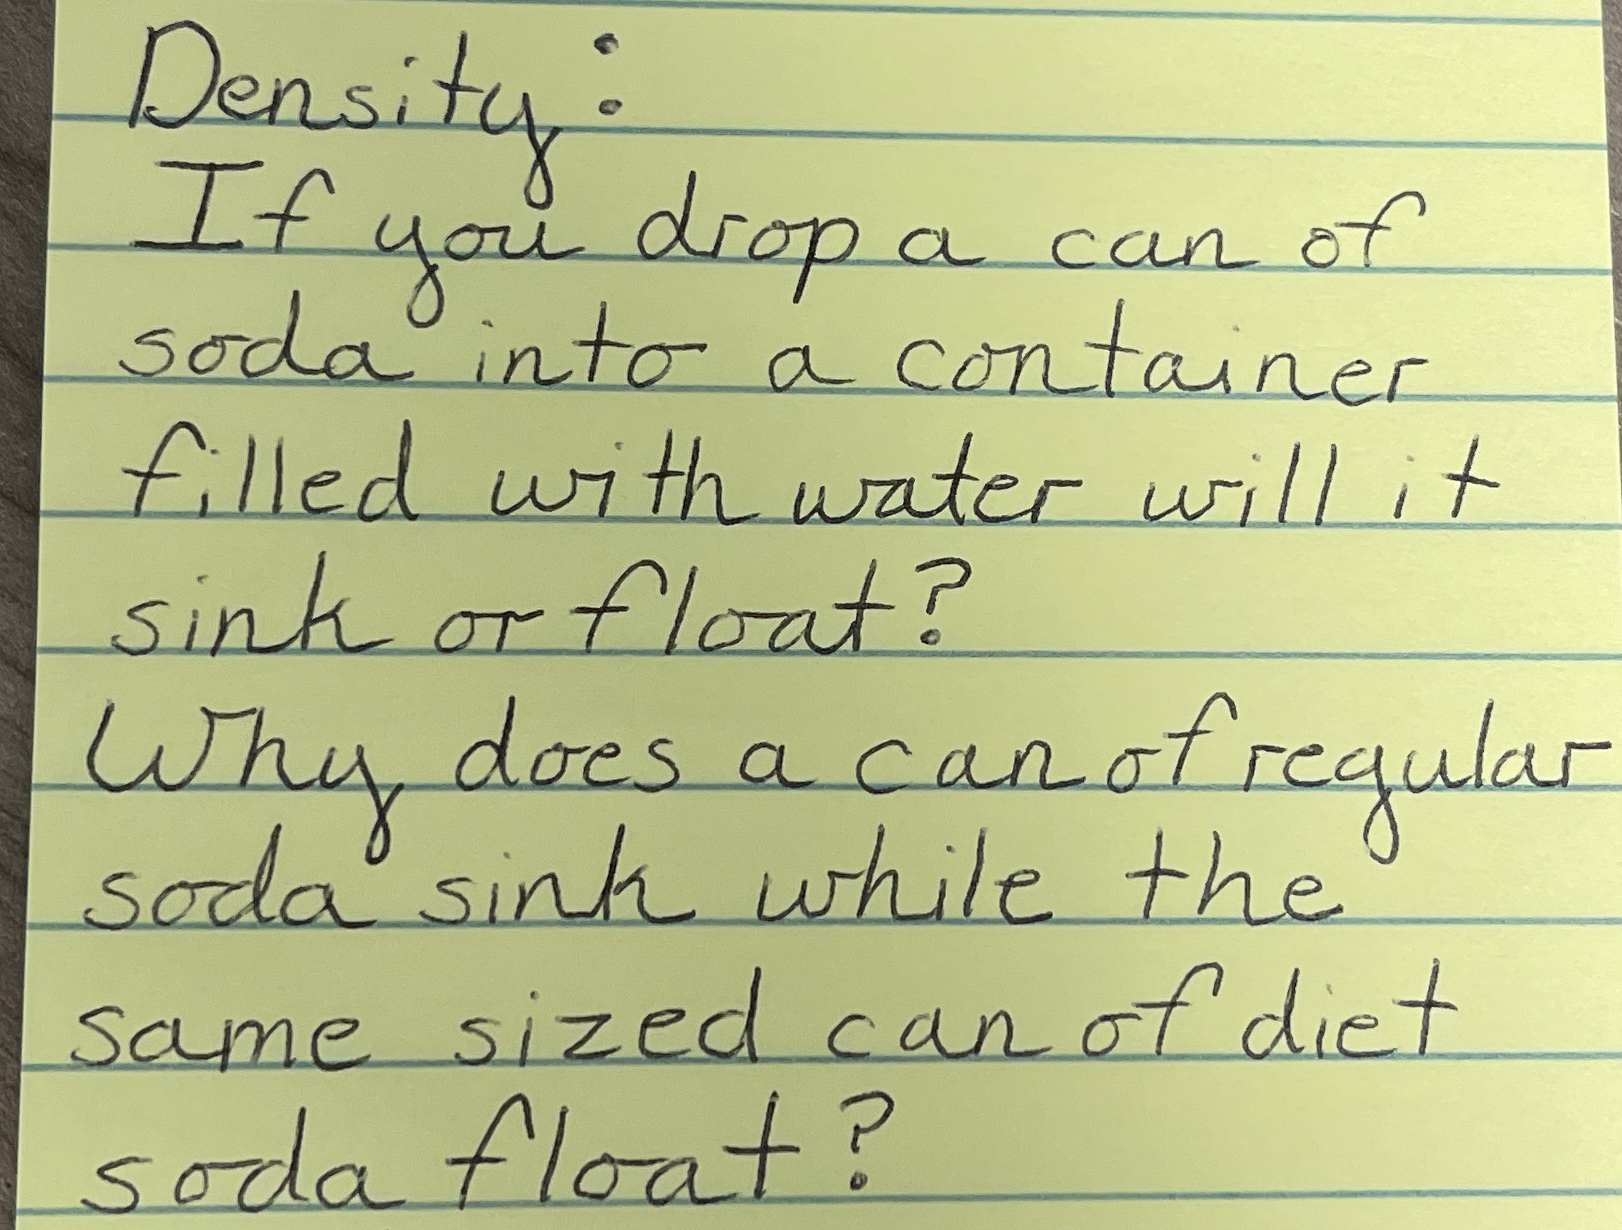 Density:
If you drop a can of
soda into a container
filled with water will it
sink or float?
Why does a can of regular
soda sink while the
same sized can of diet
soda float?